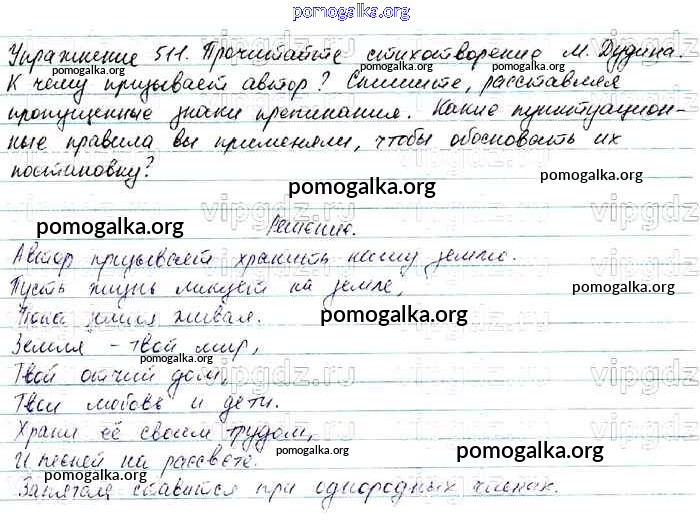 pomogalka.org
Упражнение 511. Прочитайте стихотворение М. Дудина.
К чему призывает автор? Спишите, расставляя
пропущенные знаки препинания. Какие пунктуацион-
ные правила вы применяли, чтобы обосновать их
постановку?
Решение.
Автор призывает хранить нашу землю.
Пусть жизнь ликует на земле,
Пока земля живая.
Земля - твой мир,
Твой отчий дом,
Твои любовь и дети.
Храни её своим трудом,
И песней на рассвете.
Запятая ставится при однородных членах.
pomogalka.org
pomogalka.org
pomogalka.org
pomogalka.org
pomogalka.org
pomogalka.org
pomogalka.org
pomogalka.org
pomogalka.org
pomogalka.org
pomogalka.org
pomogalka.org
pomogalka.org
vipgdz.ru
vipgdz.ru
vipgdz.ru